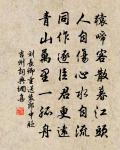 猿啼客散暮江頭
人自傷心水自流
同作逐臣君更遠
青山萬里一孤舟
劉長卿重送裴郎中貶
吉州詞典網集